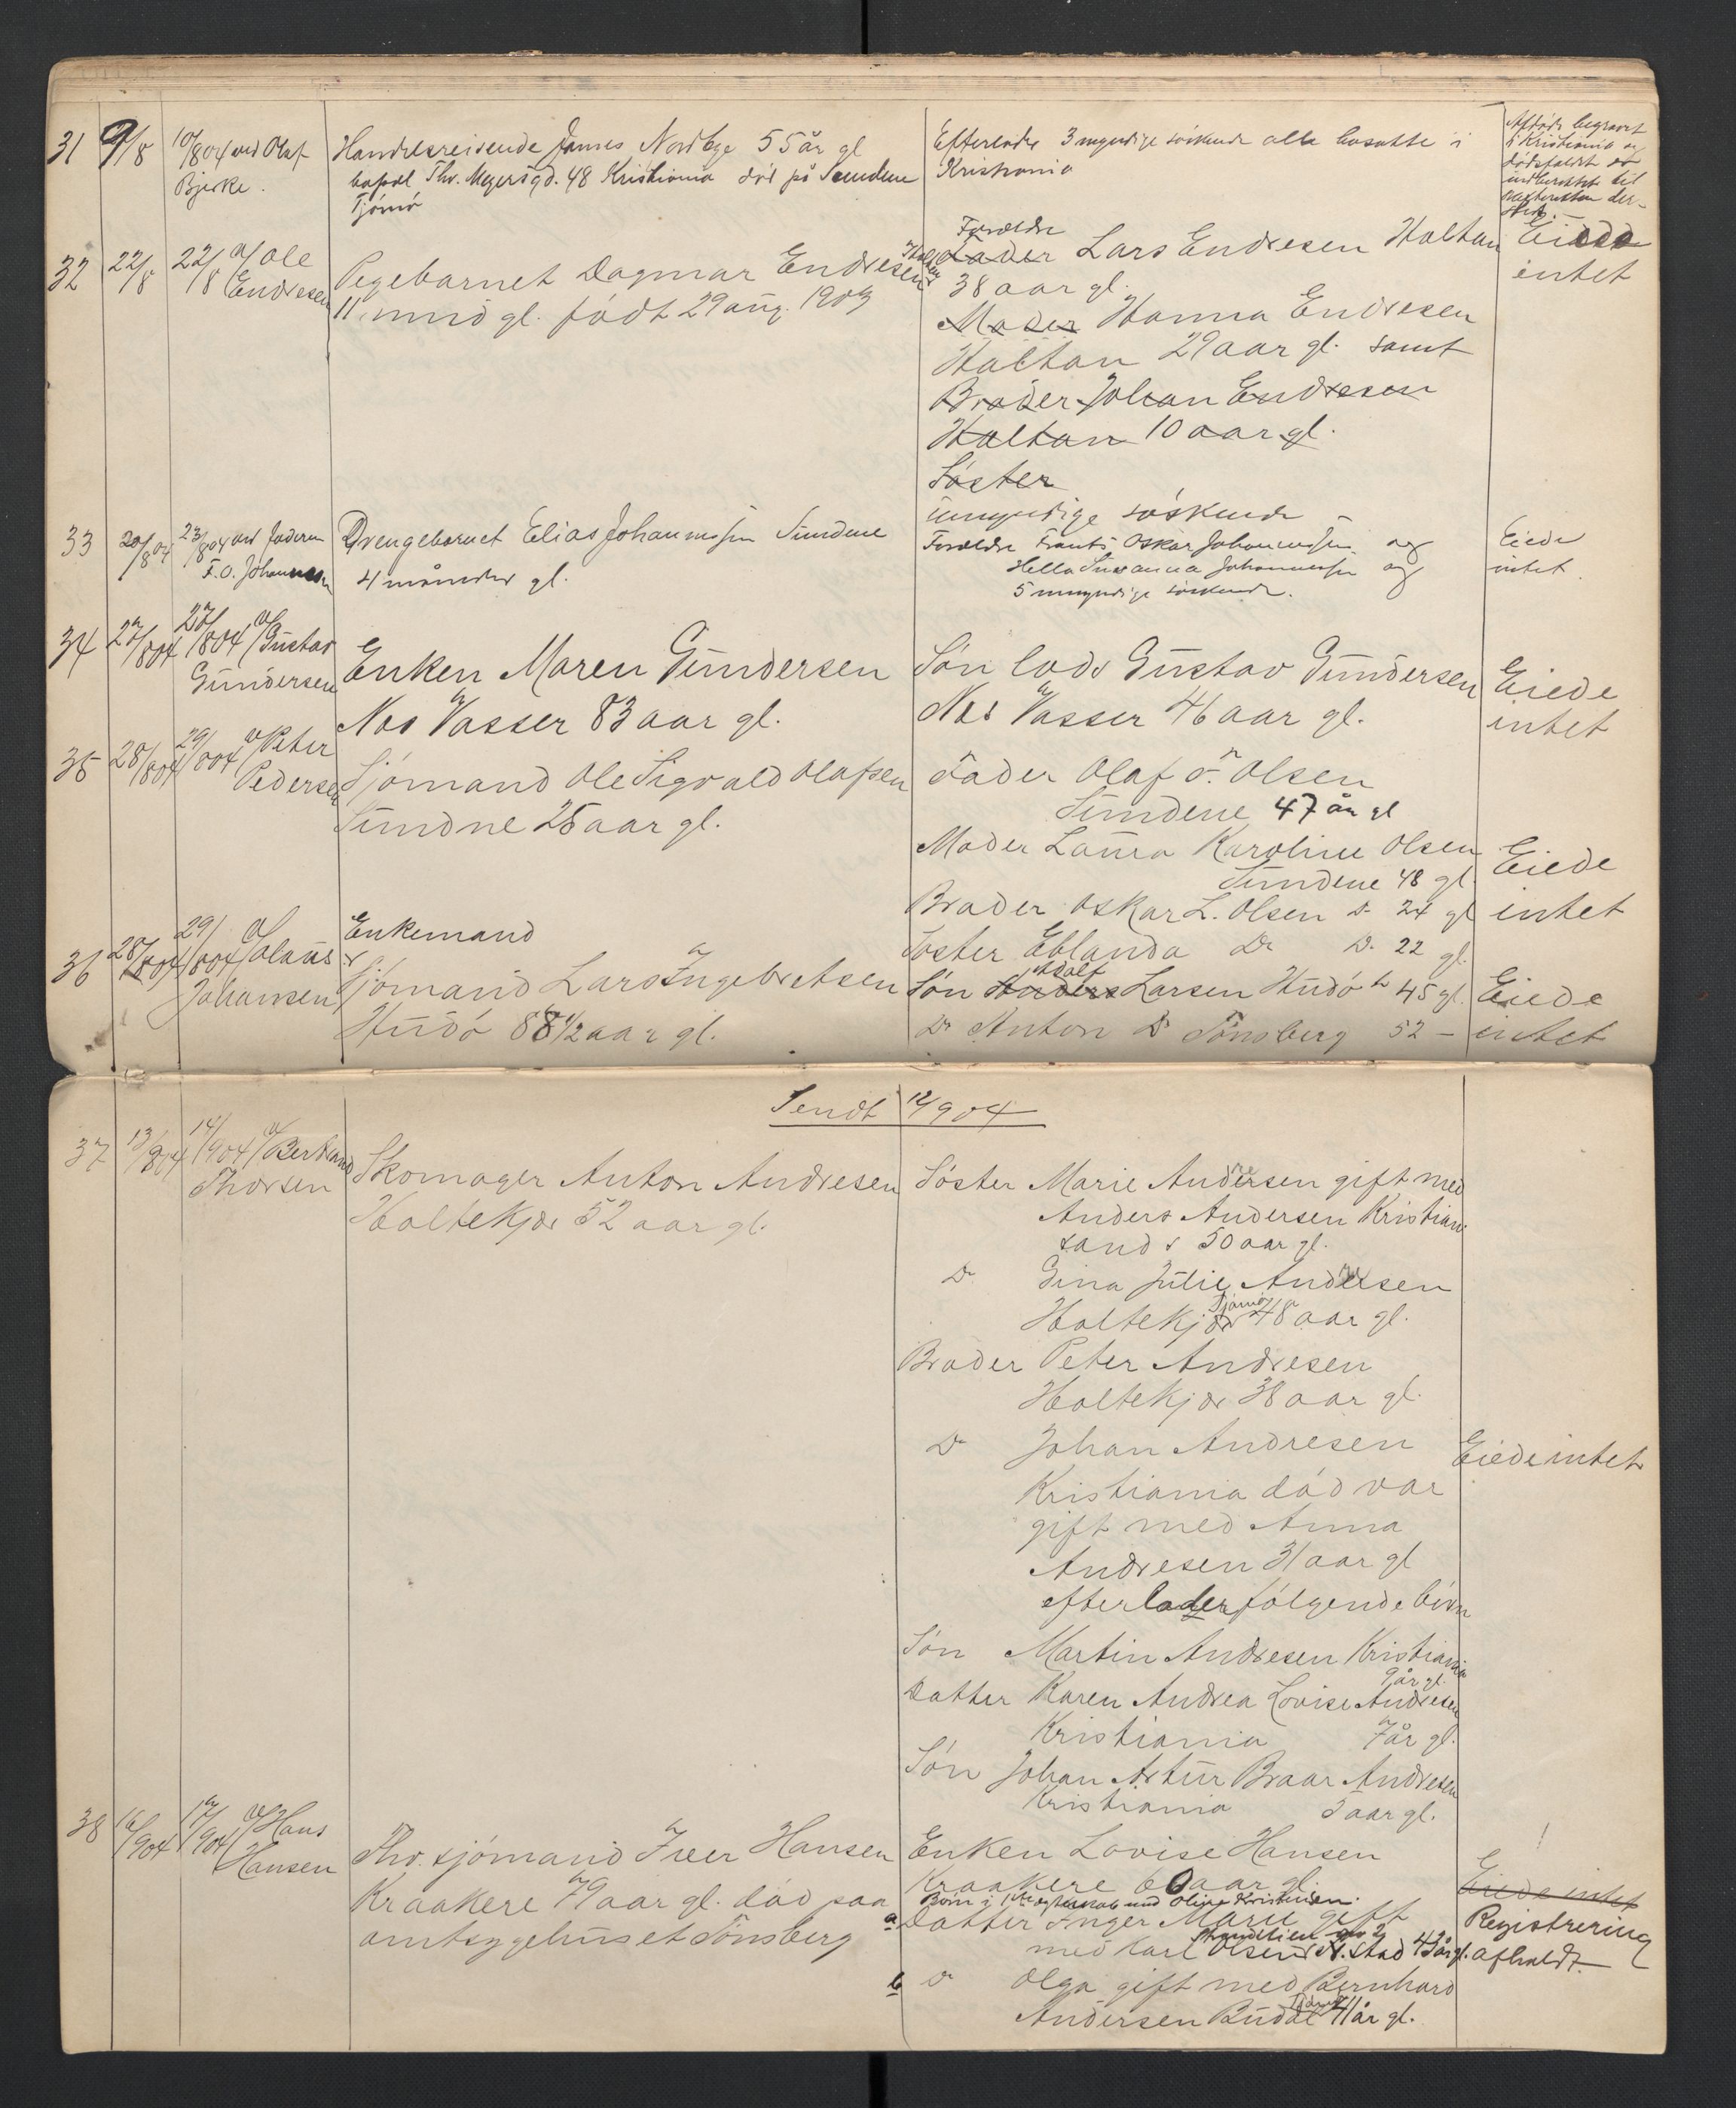 31 9/8 10/8 04 ved Olaf Bjerke.
Handelsreisende James Nordbye 55 år gl
bopæl Thv. Meyersgd. 48 Kristiania død på Sundene
Tjømø
Efterlader 3 myndige søskende alle bosatte i
Kristiania
Afdøde begravet
i Kristiania og
dødsfaldet er
indberettet til
skifteretten der-
sted.
32 22/8 22/8 v/ Ole Endresen
Pigebarnet Dagmar Endresen Holtan
11 mnd gl. født 29 aug. 1903
Forældre
Fader Lars Endresen Holtan
38 aar gl.
Moder Hanna Endresen
Holtan 29 aar gl. samt
Broder Johan Endresen
Holtan 10 aar gl.
Søster
umyndige søskende
Eiede
intet
33 20/8 04 23/8 04 ved faderen F.O. Johannessen
Drengebarnet Elias Johannessen Sundene
4 måneder gl.
Forældre Frants Oskar Johannessen og
Hella Susanna Johannessen og
5 umyndige søskende.
Eiede
intet.
34 27/8 04 27/8 04 v/ Gustav Gundersen
Enken Maren Gundersen
Nes Vasser 83 aar gl.
Søn lods Gustav Gundersen
Nes Vasser 46 aar gl.
Eiede
intet
35 28/8 04 29/8 04 v/ Peter Pedersen
Sjømand Ole Sigvald Olafsen
Sundne 25 aar gl.
Fader Olaf F. Olsen
Sundene 47 år gl
Moder Laura Karoline Olsen
Sundene 48 gl.
Broder Oskar L. Olsen Do 24 gl
Søster Eblanda Do Do 22 gl.
Eiede
intet
36 28/8 04 29/8 04 v/ Olaus Johansen
Enkemand
Sjømand Lars Ingebretsen
Hudø 88 1/2 aar gl.
Søn Anders Adolf Larsen Hudø 45 gl.
Do Anton Do Tønsberg 52 —
Eiede
intet
Sendt 12/9 04
37 13/9 04 14/9 04 v/ Bertrand Thorsen
Skomager Anton Andresen
Holtekjær 52 aar gl.
Søster Marie Andersen gift med
Anders Andersen Kristian-
sand s 50 aar gl.
Do Gina Julie Andersen
Holtekjær Tjømø 48 aar gl.
Broder Peter Andresen
Holtekjær 38 aar gl.
Do Johan Andresen
Kristiania død var
gift med Anna
Andresen 31 aar gl
efterlader følgende børn
Søn Martin Andresen Kristiania
9 år gl.
Datter Karen Andrea Lovise Andresen
Kristiania 7 år gl.
Søn Johan Artur Braar Andresen
Kristiania 5 aar gl.
Eiede intet
38 16/9 04 17/9 04 v/ Hans Hansen
Fhv. sjømand Iver Hansen
Kraakere 79 aar gl. død paa
amtsygehuset Tønsberg
Enken Lovise Hansen
Kraakere 60 aar gl.
Børn i 1ste ægteskab med Oline Kristensen.
a Datter Inger Marie gift
med Carl Olsen N. stad 43 år gl.
b Do Olga gift med Bernhard
Andersen Budal Tjømø 41 år gl.
Eiede intet
Registrering
afholdt.